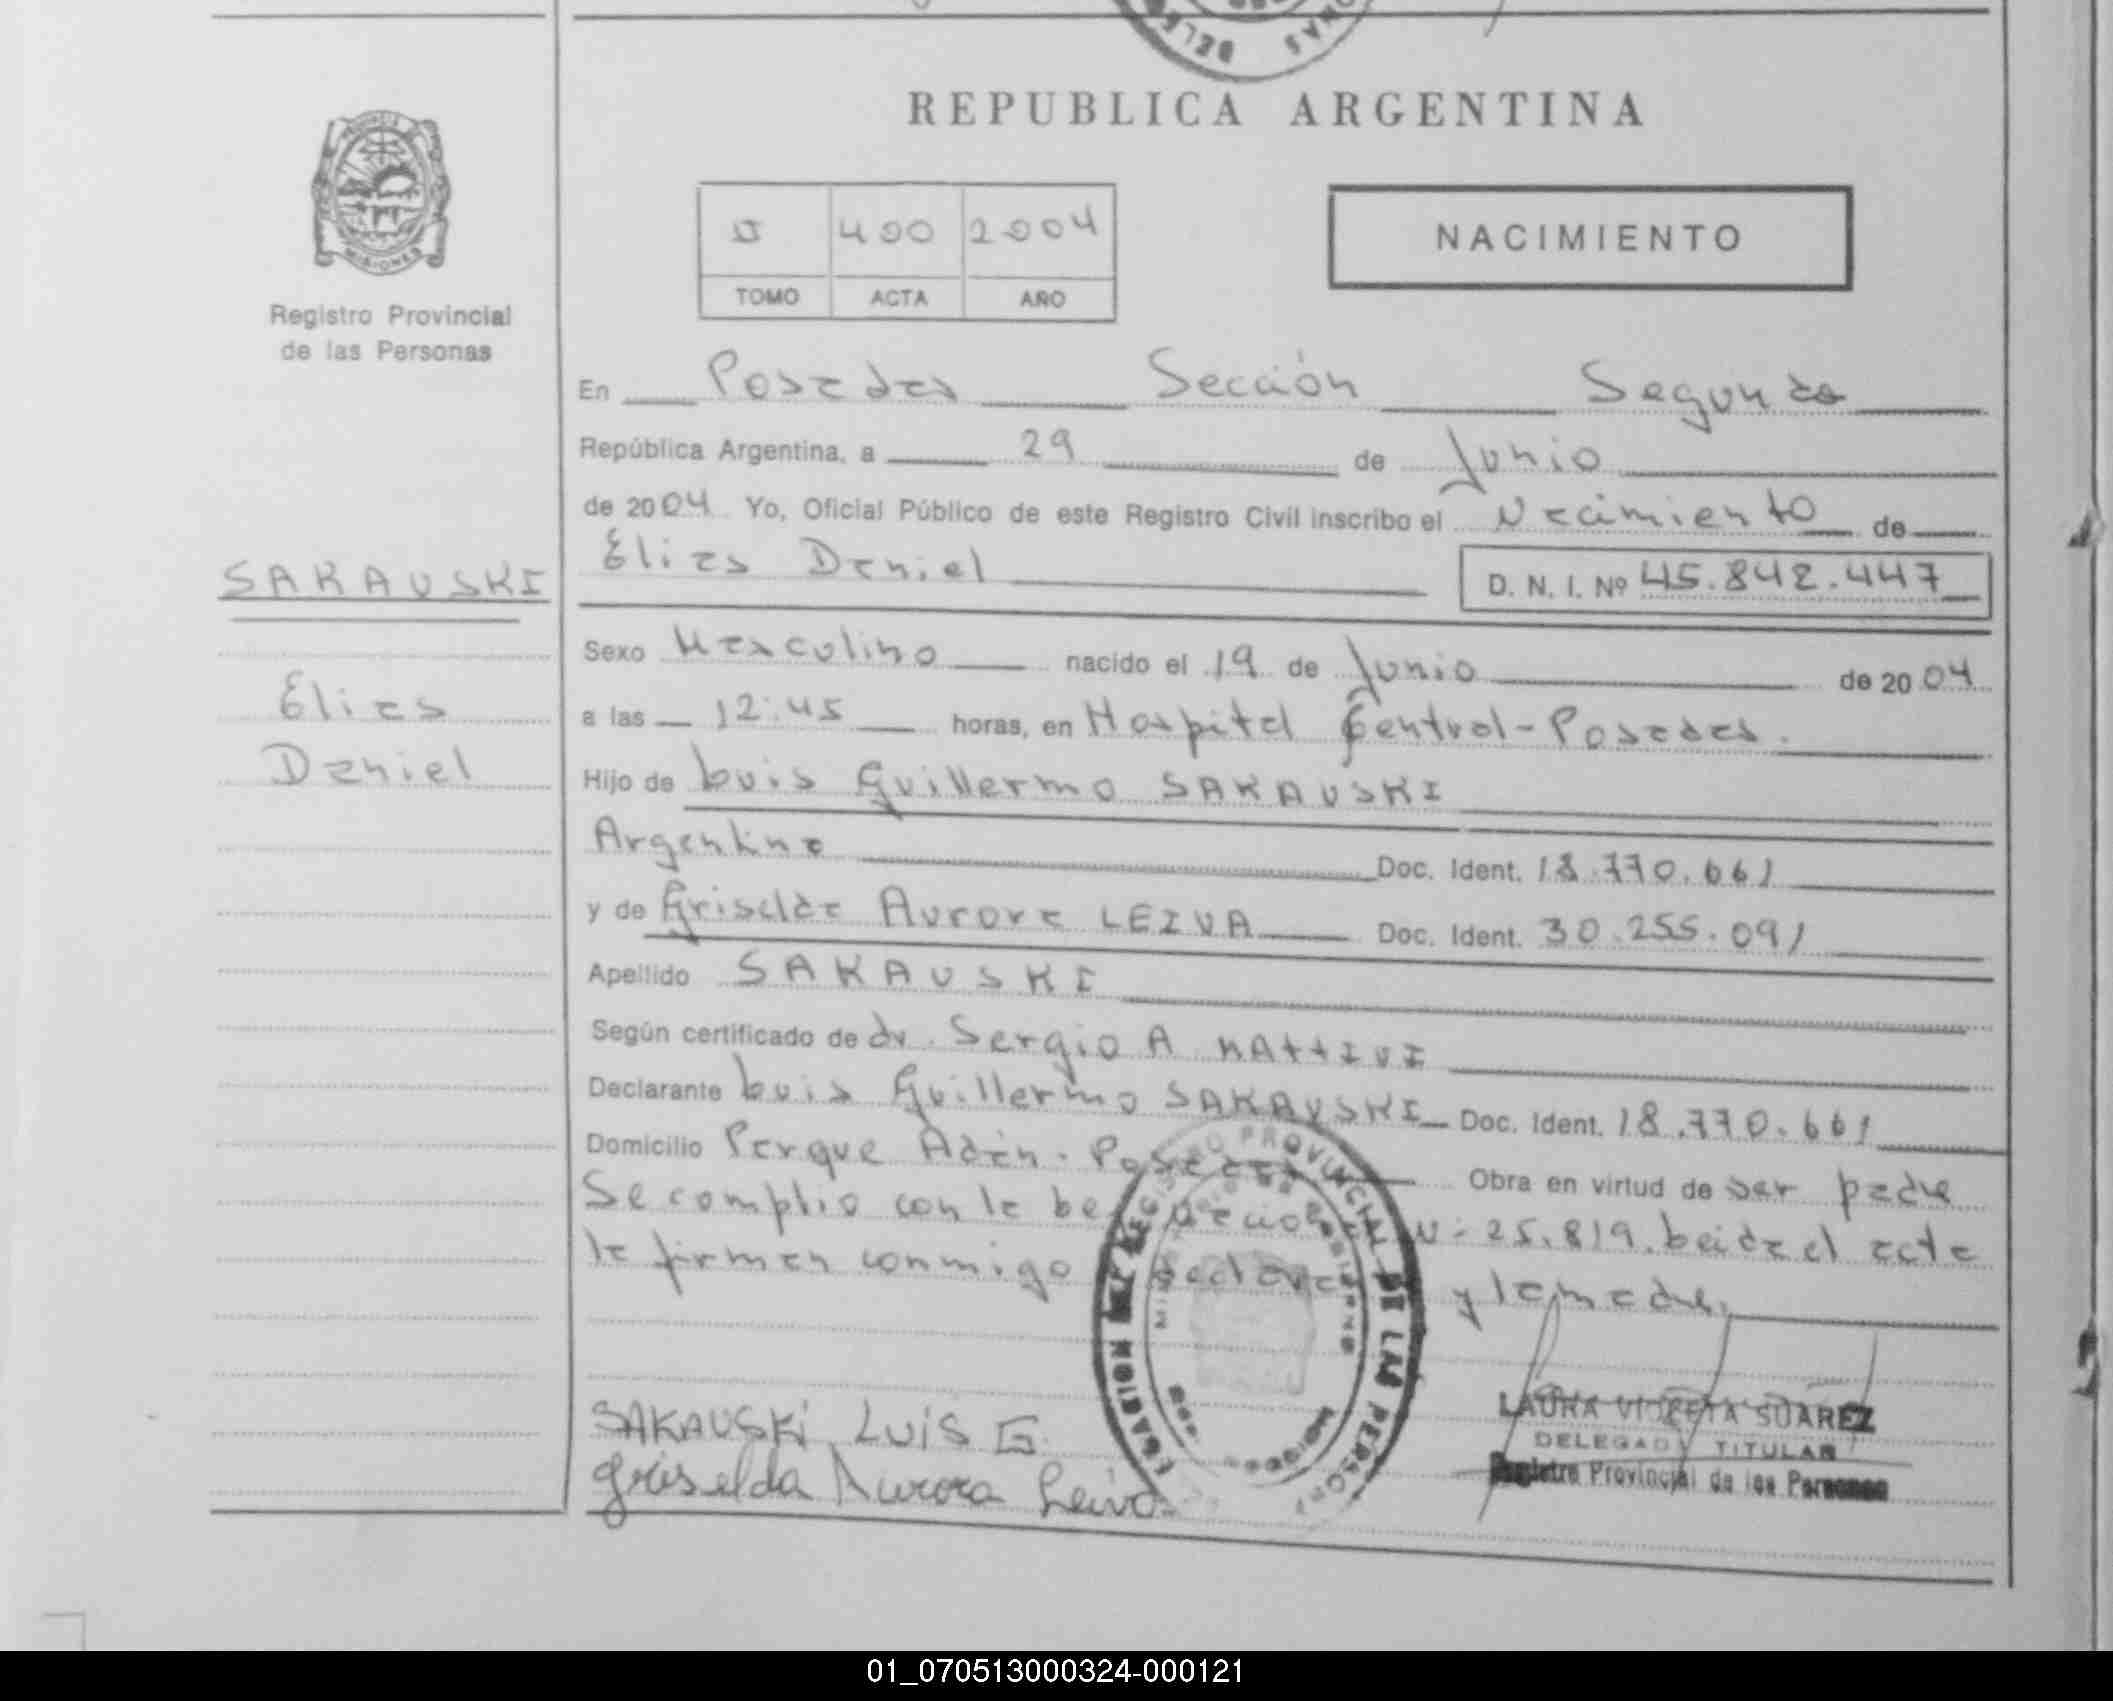 REPUBLICA ARGENTINA
PROVINCIA
MISIONES
Registro Provincial
de las Personas
400 2004
TOMO ACTA AÑO
NACIMIENTO
En Posadas Sección Segunda
República Argentina, a 29 de Junio
de 2004 Yo, Oficial Público de este Registro Civil inscribo el Nacimiento de
SAKAUSKI
Elias Daniel
D. N. I. Nº 45.842.447
Sexo Masculino nacido el 19 de Junio de 2004
Elias
Daniel
a las 12:45 horas, en Hospital Central - Posadas.
Hijo de Luis Guillermo SAKAUSKI
Argentina Doc. Ident. 18.770.661
y de Griselda Aurora LEIVA Doc. Ident. 30.255.091
Apellido SAKAUSKI
Según certificado de dr. Sergio A MATTIVI
Declarante Luis Guillermo SAKAUSKI Doc. Ident. 18.770.661
Domicilio Parque Adán - Posadas Obra en virtud de ser padre
Se complio con la Nº 25.819. Leida el acta
la firman conmigo declarante y la madre.
SAKAUSKI LUIS G.
Griselda Aurora Leiva
REGISTRO PROVINCIAL DE LAS PERSONAS
LAURA VIOLETA SUAREZ
DELEGADA TITULAR
Registro Provincial de las Personas
01_070513000324-000121